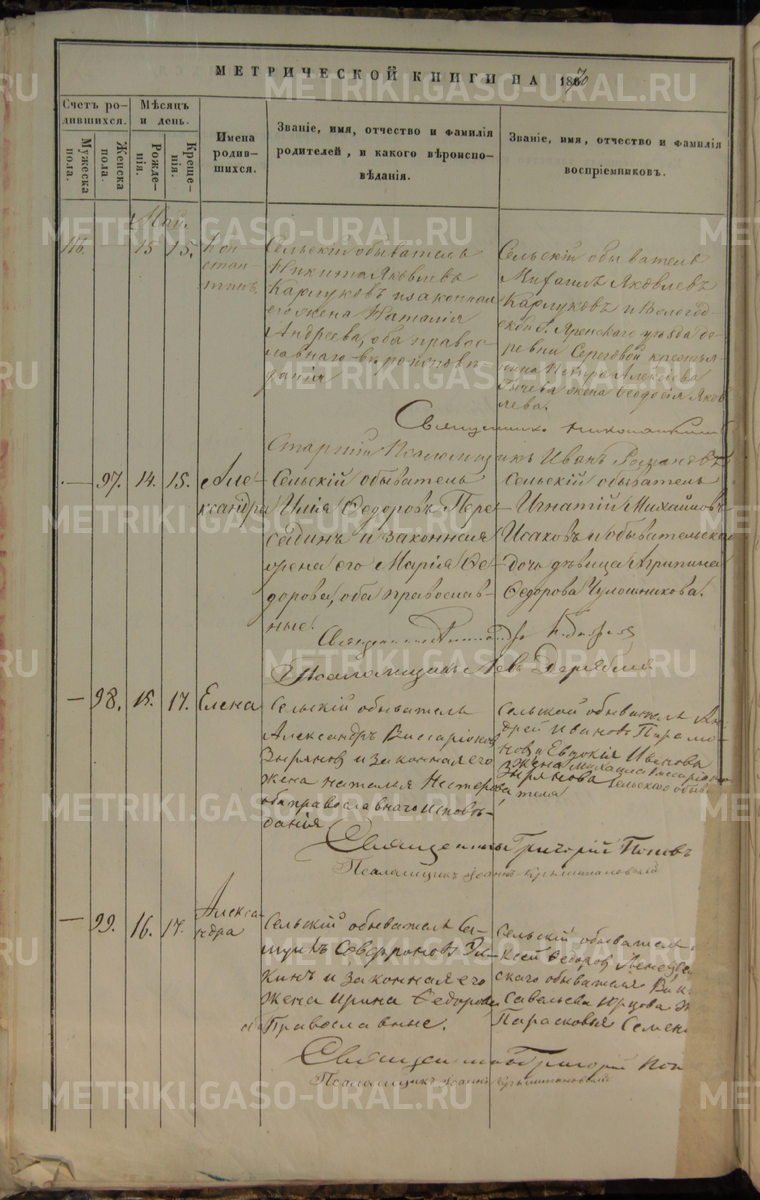 МЕТРИЧЕСКОЙ КНИГИ НА 1870
Счетъ ро-
дившихся.
Мужеска
пола.
Женска
пола.
Мѣсяцъ
и день.
Рожде-
нія.
Креще-
нія.
Имена
родив-
шихся.
Званіе, имя, отчество и фамилія
родителей, и какого вѣроиспо-
вѣданія.
Званіе, имя, отчество и фамилія
воспріемниковъ.
116. 15 15. Кон
стан
тинъ.
Сельскій обыватель
Никита Яковлевъ
Карлуковъ и законная
его жена Наталія
Андреева, оба право
славнаго вѣроисповѣ
данія
Сельскій обыватель
Михаилъ Яковлевъ
Карлуковъ и Вологод-
ской Яренскаго уѣзда де-
ревни Сереговой крестья
нина Петра Алексѣева
жена Ѳеодосія Яков
лева.
Священникъ
Старшій Псаломщикъ Иванъ
— 97. 14. 15. Але-
ксандра
Сельскій обыватель
Илія Ѳедоровъ Пере-
сѣдинъ и законная
жена его Марія Ѳе-
дорова, оба православ-
ные.
Сельскій обыватель
Игнатій Михайловъ
Исаковъ и обывательская
дочь дѣвица Агрипина
Ѳедорова Чулошникова.
Псаломщикъ Левъ Дерябинъ
— 98. 15. 17. Елена
Сельскій обыватель
Александръ Виссаріоновъ
Зыряновъ и законная его
жена Наталья Нестерова
оба православнаго исповѣ-
данія
Сельской обыватель Ан
дрей Ивановъ Парамо
новъ и Евдокія Иванова
жена Михаила Виссаріоно
Зырянова сельскаго обыв
ателя
Священникъ Григорій Поповъ
Псаломщикъ Іоаннъ
— 99. 16. 17. Алекса-
ндра
Сельскій обыватель Са-
муилъ Софроновъ
и законная его
жена Ирина Ѳедорова
оба Православные.
Сельскій обыватель
Ѳедоровъ
скаго обывателя
Савельева жена
Парасковья Семен
Священникъ Григорій Поп
Псаломщикъ Іоаннъ
METRIKI.GASO-URAL.RU